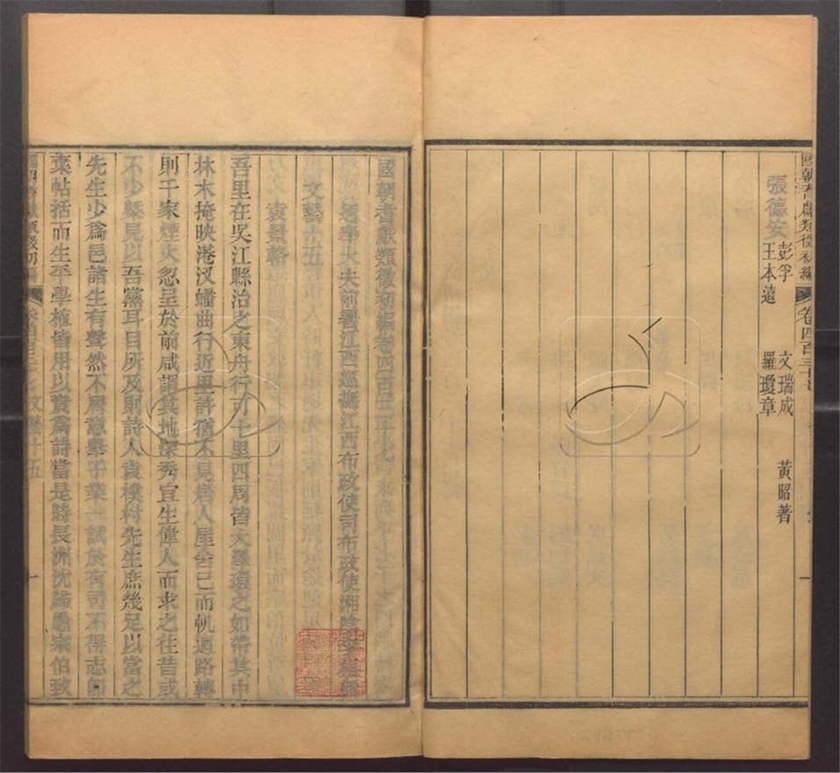 國朝耆獻類徵初編 卷四百三十
張德安 彭孚 文瑞成 黃昭著
王本遠 羅瓊章
國朝耆獻類徵初編卷四百三十
大夫前署江西巡撫江西布政使司布政使湘陰李桓輯
文藝十五
袁景輅
吾里在吳江縣治之東舟行可十里四周皆大澤環之如帶其中
林木掩映港汊蟠曲行近里許猶不見居人屋舍已而帆迴路轉
則千家煙火忽呈於前咸謂其地深秀宜生偉人而求之往昔或
不少槩見以吾黨耳目所及則詩人袁樸村先生庶幾足以當之
先生少為邑諸生有聲然不屑意舉子業一試於有司不得志即
棄帖括而生平學植皆用以資為詩當是時長洲沈歸愚宗伯致
文藝十五
一